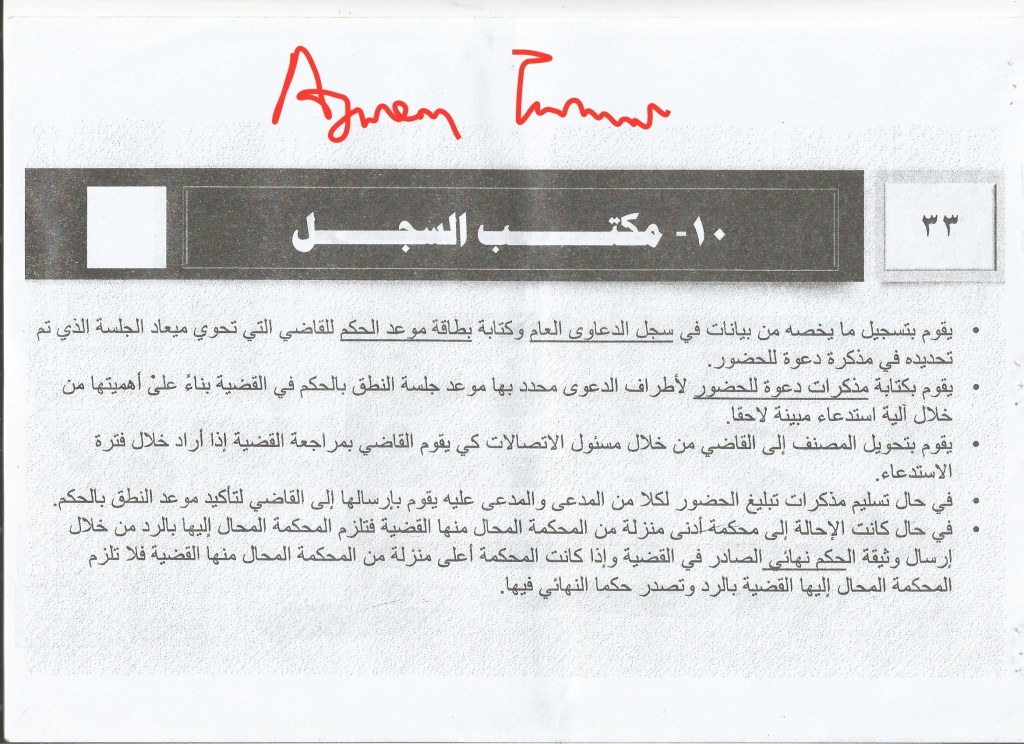 ٣٣
١٠- مكتب السجل
• يقوم بتسجيل ما يخصه من بيانات في سجل الدعاوى العام وكتابة بطاقة موعد الحكم للقاضي التي تحوي ميعاد الجلسة الذي تم
تحديده في مذكرة دعوة للحضور.
• يقوم بكتابة مذكرات دعوة للحضور لأطراف الدعوى محدد بها موعد جلسة النطق بالحكم في القضية بناءً علىْ أهميتها من
خلال آلية استدعاء مبينة لاحقا.
• يقوم بتحويل المصنف إلى القاضي من خلال مسئول الاتصالات كي يقوم القاضي بمراجعة القضية إذا أراد خلال فترة
الاستدعاء.
• في حال تسليم مذكرات تبليغ الحضور لكلا من المدعى والمدعى عليه يقوم بإرسالها إلى القاضي لتأكيد موعد النطق بالحكم.
• في حال كانت الإحالة إلى محكمة أدنى منزلة من المحكمة المحال منها القضية فتلزم المحكمة المحال إليها بالرد من خلال
إرسال وثيقة الحكم نهائي الصادر في القضية وإذا كانت المحكمة أعلى منزلة من المحكمة المحال منها القضية فلا تلزم
المحكمة المحال إليها القضية بالرد وتصدر حكما النهائي فيها.